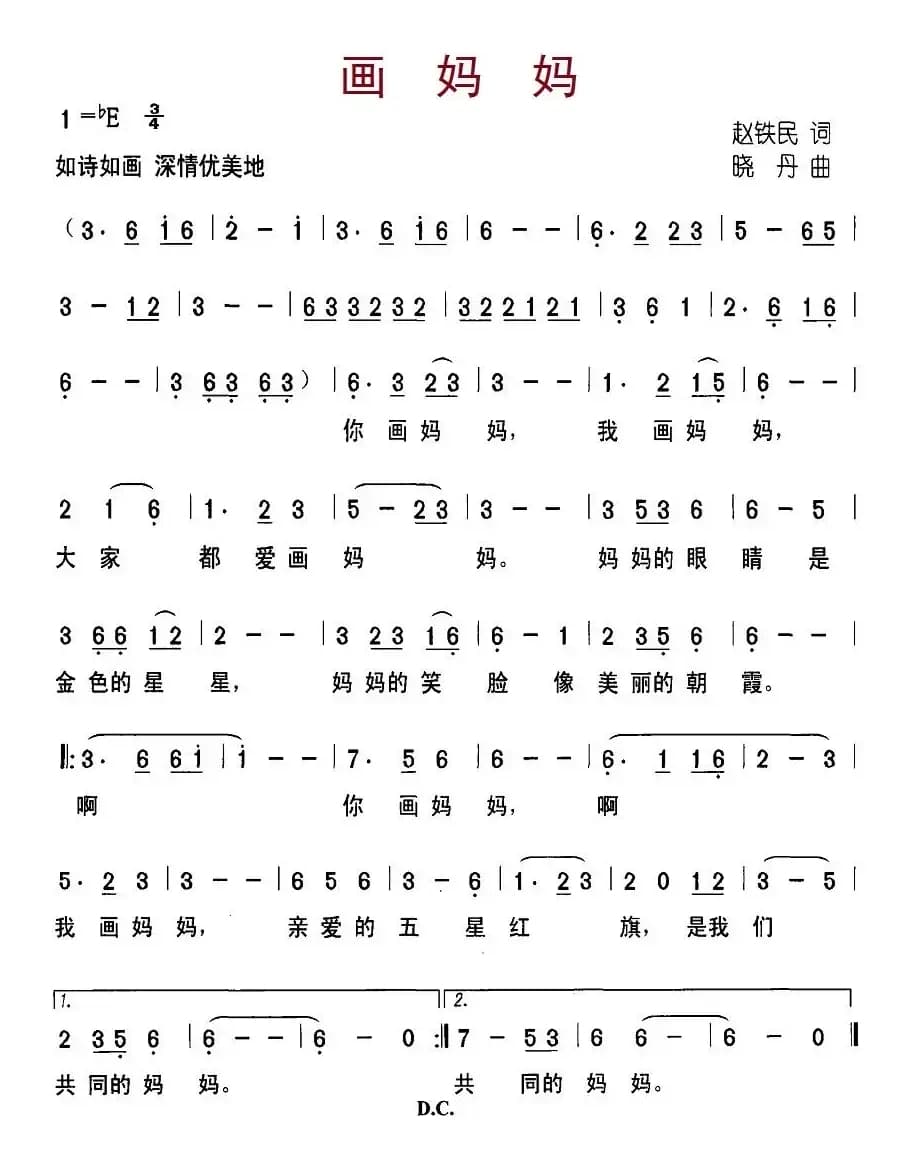 画 妈 妈
1=♭E 3/4
赵铁民 词
如诗如画 深情优美地
晓 丹 曲
(3. 6 i6 | 2 - i | 3. 6 i6 | 6 - - | 6. 2 23 | 5 - 65 |
3 - 12 | 3 - - | 633232 | 322121 | 3 6 1 | 2. 6 16 |
6 - - | 3 63 63) | 6. 3 23 | 3 - - | 1. 2 15 | 6 - - |
你 画 妈 妈, 我 画 妈 妈,
2 1 6 | 1. 2 3 | 5 - 23 | 3 - - | 3 53 6 | 6 - 5 |
大 家 都 爱 画 妈 妈。 妈 妈的 眼 睛 是
3 66 12 | 2 - - | 3 23 16 | 6 - 1 | 2 35 6 | 6 - - |
金 色的 星 星, 妈 妈的 笑 脸 像 美 丽的 朝 霞。
‖: 3. 6 6i | i - - | 7. 5 6 | 6 - - | 6. 1 16 | 2 - 3 |
啊 你 画 妈 妈, 啊
5. 2 3 | 3 - - | 6 5 6 | 3 - 6 | 1. 23 | 2 0 12 | 3 - 5 |
我 画 妈 妈, 亲 爱 的 五 星 红 旗, 是我 们
1. 2.
2 35 6 | 6 - - | 6 - 0 :‖ 7 - 53 | 6 6 - | 6 - 0 ‖
共 同的 妈 妈。 共 同的 妈 妈。
D.C.